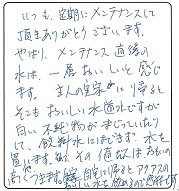 いつも、定期にメンテナンスして
頂きありがとうございます。
やはり、メンテナンス直後の
水は、一層おいしいと感じ
ます。主人の実家に帰ると
そこもおいしい水道水ですが
白い不純物がまじっていたり
して、飲料水にはできず、水を
買います。なお、その値段は
高くつきます。自宅に帰るとアクアスの
おいしい水を飲めるので